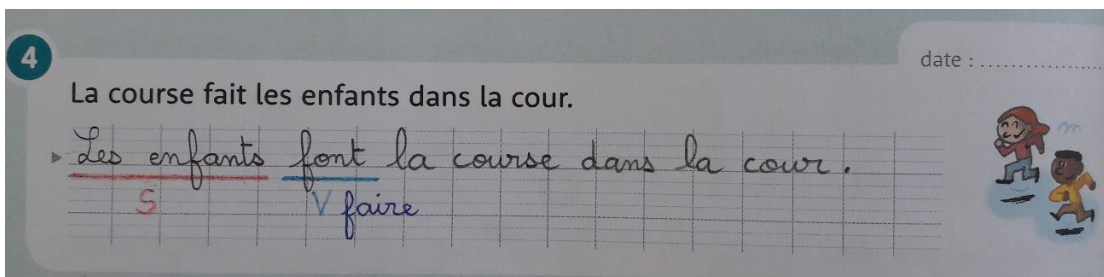 4
date : ..................
La course fait les enfants dans la cour.
Les enfants font la course dans la cour.
S V faire